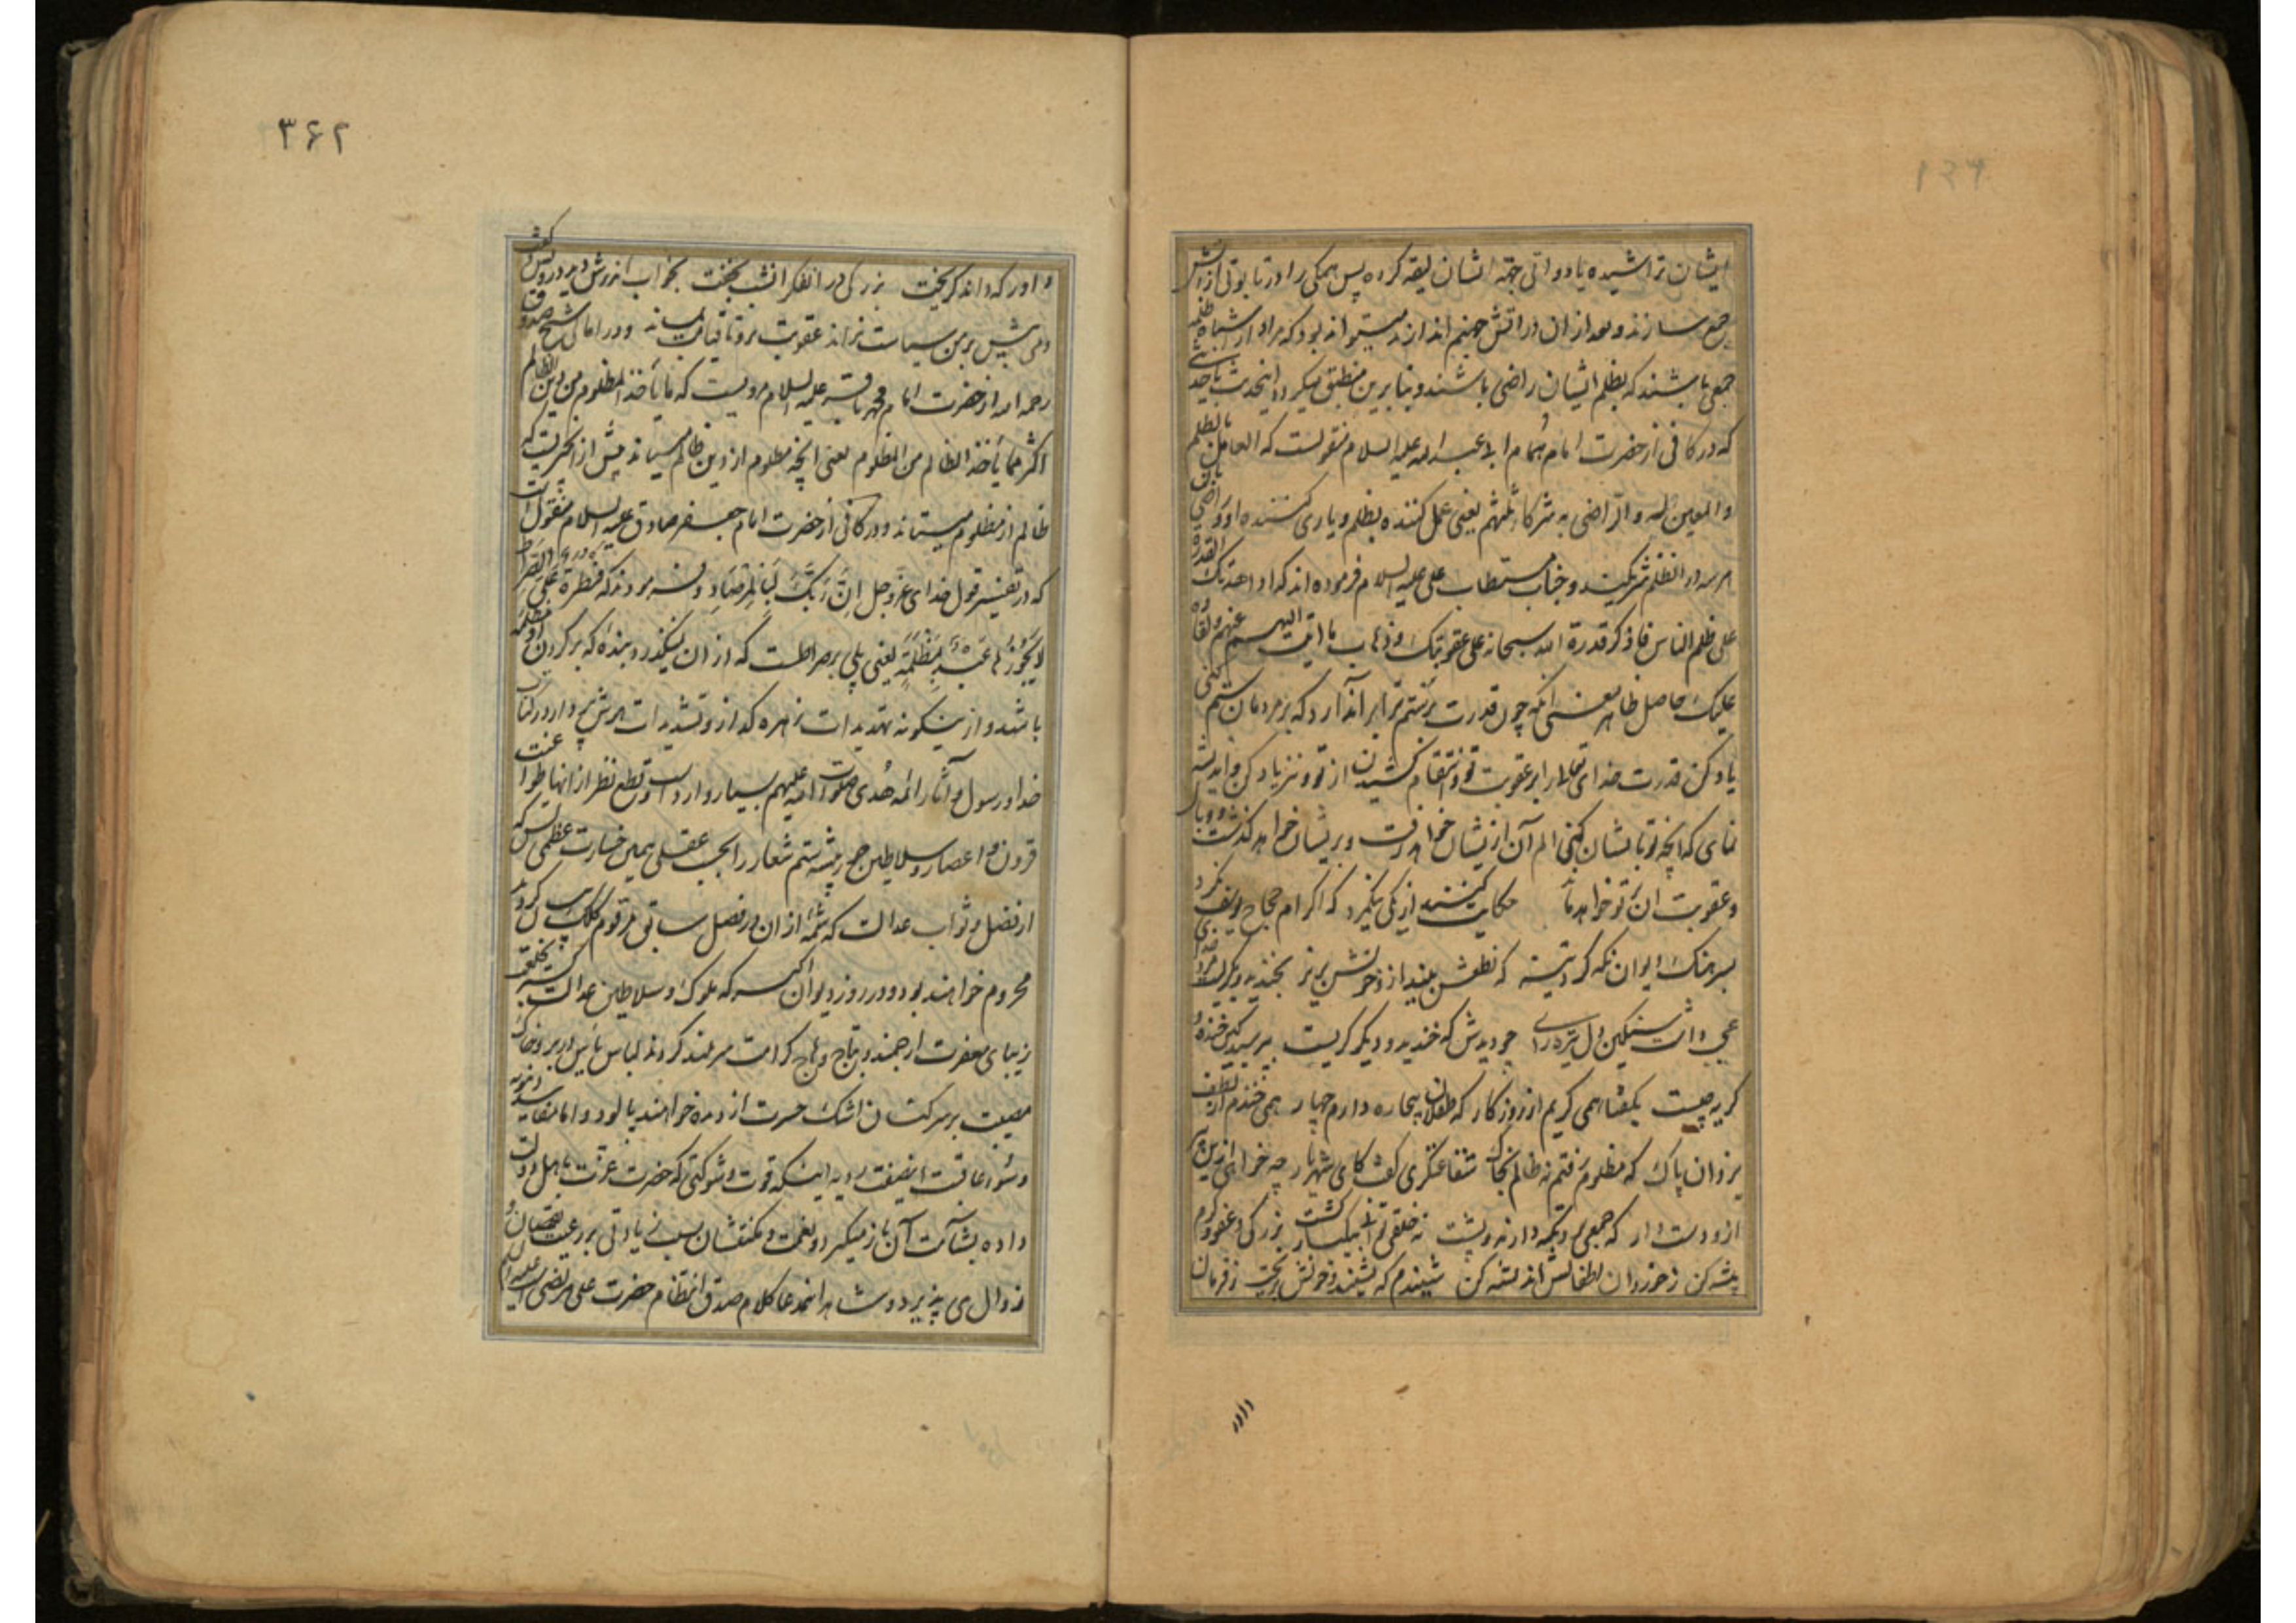 ایشان تراشیده یا دواتی جهة ایشان لیقه کرده پس همکی را در تابوتی از آتش
جمع سازند و بعد از ان در اتش جهنم اندازند و میتواند بود که مراد از اشباه ظلمه
جمعی باشند که بظلم ایشان راضی باشند و بنابرین منطبق میکردد اینحدیث با حدیثی
که در کافی از حضرت امام همام ابی عبد الله علیه السلام منقولست که العامل بالظلم
والمعین له والراضی به شرکاء ثلثهم یعنی عمل کننده بظلم و یاری کننده او و راضی بآن
هر سه در انظلم شریکند و جناب مستطاب علی علیه السلام فرموده اند که اذا حدتک القدرة
علی ظلم الناس فاذکر قدرة الله سبحانه علی عقوبتک و ذهاب ما اتیت الیهم عنهم و بقاؤه
علیک حاصل ظاهر معنی انکه چون قدرت بر ستم ترا بر آن آرد که بر مردمان ستم کنی
یاد کن قدرت خدای تعالی را بر عقوبت تو و انتقام کشیدن از تو و نیز یاد کن و اندیشه
نمای که انچه تو با ایشان کنی الم آن از ایشان خواهد رفت و بر ایشان خواهد کذشت و وبال
و عقوبت ان بر تو خواهد ماند حکایت کنند از یکی نیکمرد که اکرام حجاج یوسف نکرد
بسرهنک دیوان نکه کرد تیز که نطعش بینداز و خونش بریز بخندید و بکریست مرد خدای
عجب داشت سنکین دل تیره رای چو دیدش که خندید و دیکر کریست بپرسید کین خنده و
کریه چیست بکفتا همی کریم از روزکار که طفلان بیچاره دارم چهار همی خندم از لطف
یزدان پاک که مظلوم رفتم نه ظالم بخاک شفاعتکری کفت کای شهریار چه خواهی ازین پیر
ازو دست دار که جمعی برو تکیه دارند و پشت نه خلقی توانی بیکبار کشت بزرکی و عفو و کرم
پیشه کن ز خردان اطفالش اندیشه کن شنیدم که نشنید و خونش بریخت ز فرمان
۳۶۲
داور که داند کریخت بزرکی در انفکر انشب بخفت بخواب اندرش دید درویش و کفت
دمی بیش بر من سیاست نراند عقوبت برو تا قیامت بماند و در امالی شیخ صدوق
رحمه الله از حضرت امام محمد باقر علیه السلام مرویست که ما یأخذ المظلوم من دین الظالم
اکثر مما یأخذ الظالم من المظلوم یعنی انچه مظلوم از دین ظالم میستاند بیش از انچیزیست که
ظالم از مظلوم میستاند و در کافی از حضرت امام جعفر صادق علیه السلام منقول است
که در تفسیر قول خدای عز و جل اِنَّ رَبَّکَ لَبِالمِرصَادِ فرمودند که قنطرة علی الصراط
لا یجوزها عبد بمظلمة یعنی پلی بر صراطست که از ان نیکذرد بنده که بر کردن او مظلمه
باشد و از ینکونه تهدیدات زهره کداز و تشدیدات هرش پرداز در کتاب
خدا و رسول و آثار ائمه هدی صلوات الله علیهم بسیار وارد است و قطع نظر از انها طوا
قرون و اعصار و سلاطین جور پیشه ستم شعار را بحسب عقلی همین خسارت عظمی بس که
از فضل و ثواب عدالت که شمه از ان در فصل سابق مرقوم کلک بیان کردید
محروم خواهند بود و در روز دیوان اکبر که ملوک و سلاطین عدالت کستر بخلعت
زیبای مغفرت ارجمند و بتاج وهاج کرامت سربلند کردند لباس یأس در بر و خاک
مصیبت بر سر کنان اشک حسرت از دیده خواهند پالود و اما مفاسد دنیویه
و سوء عاقبت اینصفت ردیه اینکه قوت و شوکتی که حضرت عزت باهل دولت
داده بشآمت آن باز میکیرد و نعمت و مکنتشان بسبب زیادتی بر رعیت نقصان و
زوال می پذیرد و شاهد اینمدعا کلام صدق انتظام حضرت علی مرتضی است علیه السلام